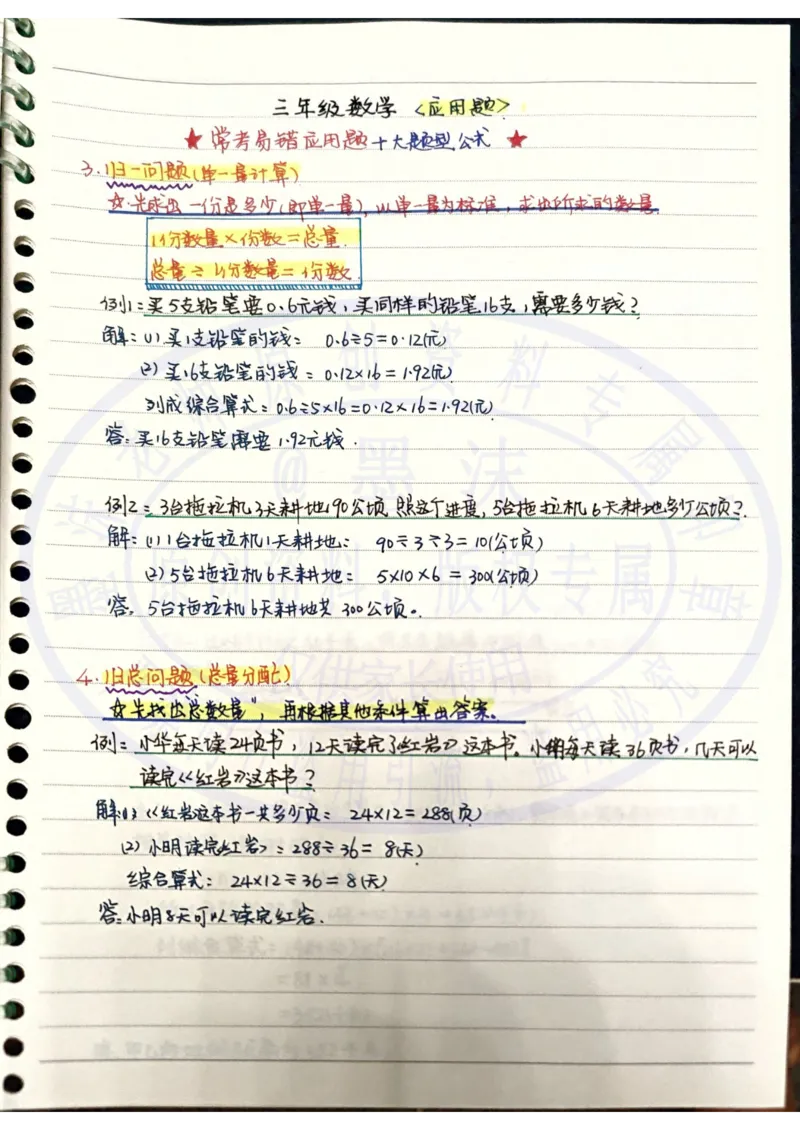 三年级数学 <应用题>
★ 常考易错应用题十大题型公式 ★
3.归一问题(单一量计算)
☆先求出一份是多少(即单一量),以单一量为标准,求出所求的数量.
1份数量×份数=总量.
总量÷1份数量=份数
例1:买5支铅笔要0.6元钱,买同样的铅笔16支,需要多少钱?
解:(1)买1支铅笔的钱: 0.6÷5=0.12(元)
(2)买16支铅笔的钱:0.12×16=1.92(元)
列成综合算式:0.6÷5×16=0.12×16=1.92(元)
答:买16支铅笔需要1.92元钱.
例2:3台拖拉机3天耕地90公顷 照这个进度,5台拖拉机6天耕地多少公顷?
解:(1)1台拖拉机1天耕地: 90÷3÷3=10(公顷)
(2)5台拖拉机6天耕地: 5×10×6=300(公顷)
答:5台拖拉机6天耕地共300公顷。
4.归总问题(总量分配)
☆先找出总数量",再根据其他条件算出答案。
例:小华每天读24页书,12天读完了《红岩》这本书。小明每天读36页书,几天可以
读完《红岩》这本书?
解:(1)《红岩》这本书一共多少页: 24×12=288(页)
(2)小明读完《红岩》:288÷36=8(天)
综合算式: 24×12÷36=8(天)
答:小明8天可以读完红岩.
@墨沫
原创资料,版权专属
仅供家长使用